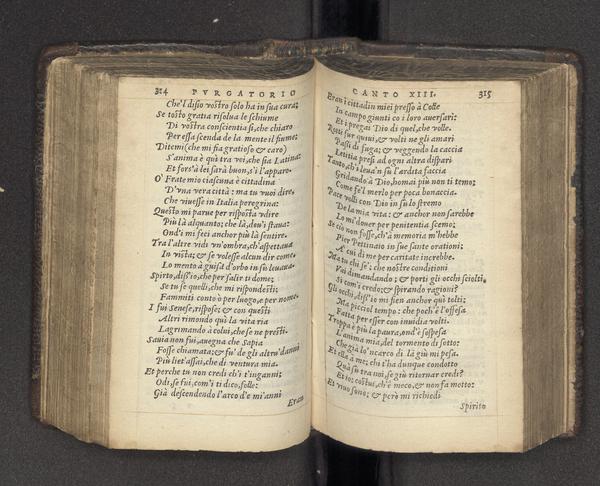 314 PVRGATORIO
Che'l disio vostro solo ha in sua cura;
Se tosto gratia risolua le schiume
Di vostra conscientia sì, che chiaro
Per essa scenda de la mente il fiume;
Ditemi (che mi fia gratioso & caro)
S'anima è quà tra voi, che sia Latina:
Et fors'à lei sarà buon, s'i l'apparo.
O' Frate mio ciascuna è cittadina
D'vna vera città: ma tu vuoi dire,
Che viuesse in Italia peregrina:
Questo mi parue per risposta vdire
Più là alquanto; che là, dou'i staua:
Ond'i mi feci anchor più là sentire.
Tra l'altre vidi vn'ombra, ch'aspettaua
In vista; & se volesse alcun dir come.
Lo mento à guisa d'orbo in sù leuaua.
Spirto, diss'io, che per salir ti dome;
Se tu se quelli, che mi rispondesti;
Fammiti conto è per luogo, e per nome.
I fui Senese, rispose; & con questi
Altri rimondo quì la vita ria
Lagrimando à colui, che se ne presti.
Sauia non fui, auegna che Sapia
Fosse chiamata; & fu' de gli altru' danni
Più liet'assai, che di ventura mia.
Et perche tu non credi ch'i t'inganni;
Odi, se fui, com'i ti dico, folle:
Già descendendo l'arco d'e mi'anni
Eran
CANTO XIII. 315
Eran i cittadin miei presso à Colle
In campo giunti co i loro auersari:
Et i pregai Dio di quel, che volle.
Rotti fur quiui, & volti ne gli amari
Passi di fuga; & veggendo la caccia
Letitia presi ad ogni altra dispari
Tanto, ch'i leua'n su l'ardita faccia
Gridando à Dio, homai più non ti temo;
Come fe'l merlo per poca bonaccia.
Pace volli con Dio in su lo stremo
De la mia vita: & anchor non sarebbe
Lo mi' douer per penitentia scemo;
Se ciò non fosse, ch'à memoria m'hebbe
Pier Pettinaio in sue sante orationi;
A' cui di me per caritate increbbe.
Ma tu chi se'; che nostre conditioni
Vai dimandando; & porti gli occhi sciolti,
Si com'i credo; & spirando ragioni?
Gli occhi, diss'io mi fien anchor quì tolti;
Ma picciol tempo: che poch'è l'offesa
Fatta per esser con inuidia volti.
Troppa è più la paura, ond'è sospesa
L'anima mia, del tormento di sotto:
Che già lo'ncarco di là giù mi pesa.
Et ella à me; chi t'ha dunque condotto
Quà su tra noi, se giù ritornar credi?
Et io; costui, ch'è meco, & non fa motto:
Et viuo sono; & però mi richiedi
Spirito